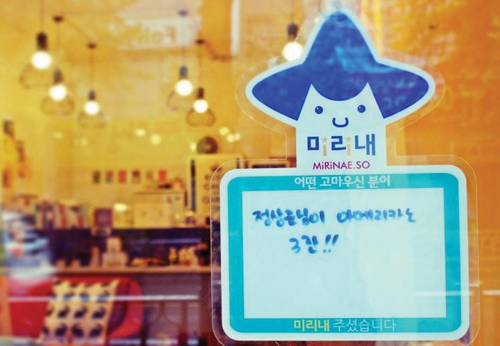 미리내
MiRiNAE.SO
어떤 고마우신 분이
정상훈님이 아메리카노
3잔!!
미리내 주셨습니다